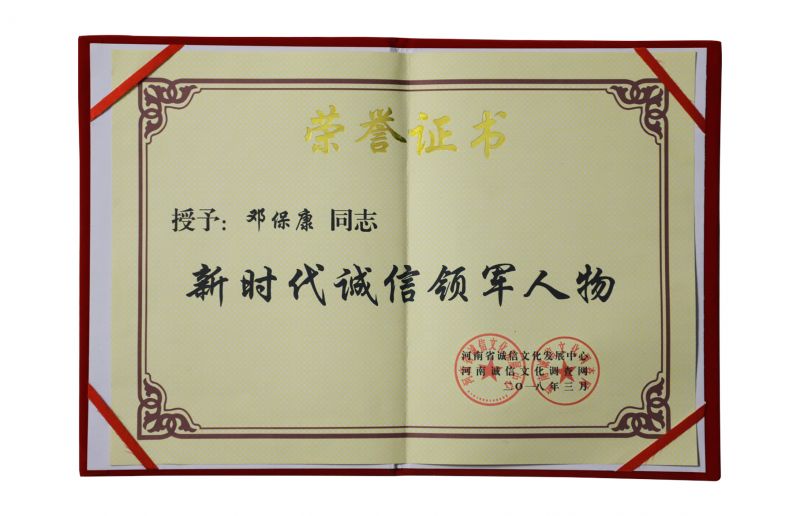 荣誉证书
授予：邓保康 同志
新时代诚信领军人物
河南省诚信文化发展中心
河南诚信文化调查网
二〇一八年三月